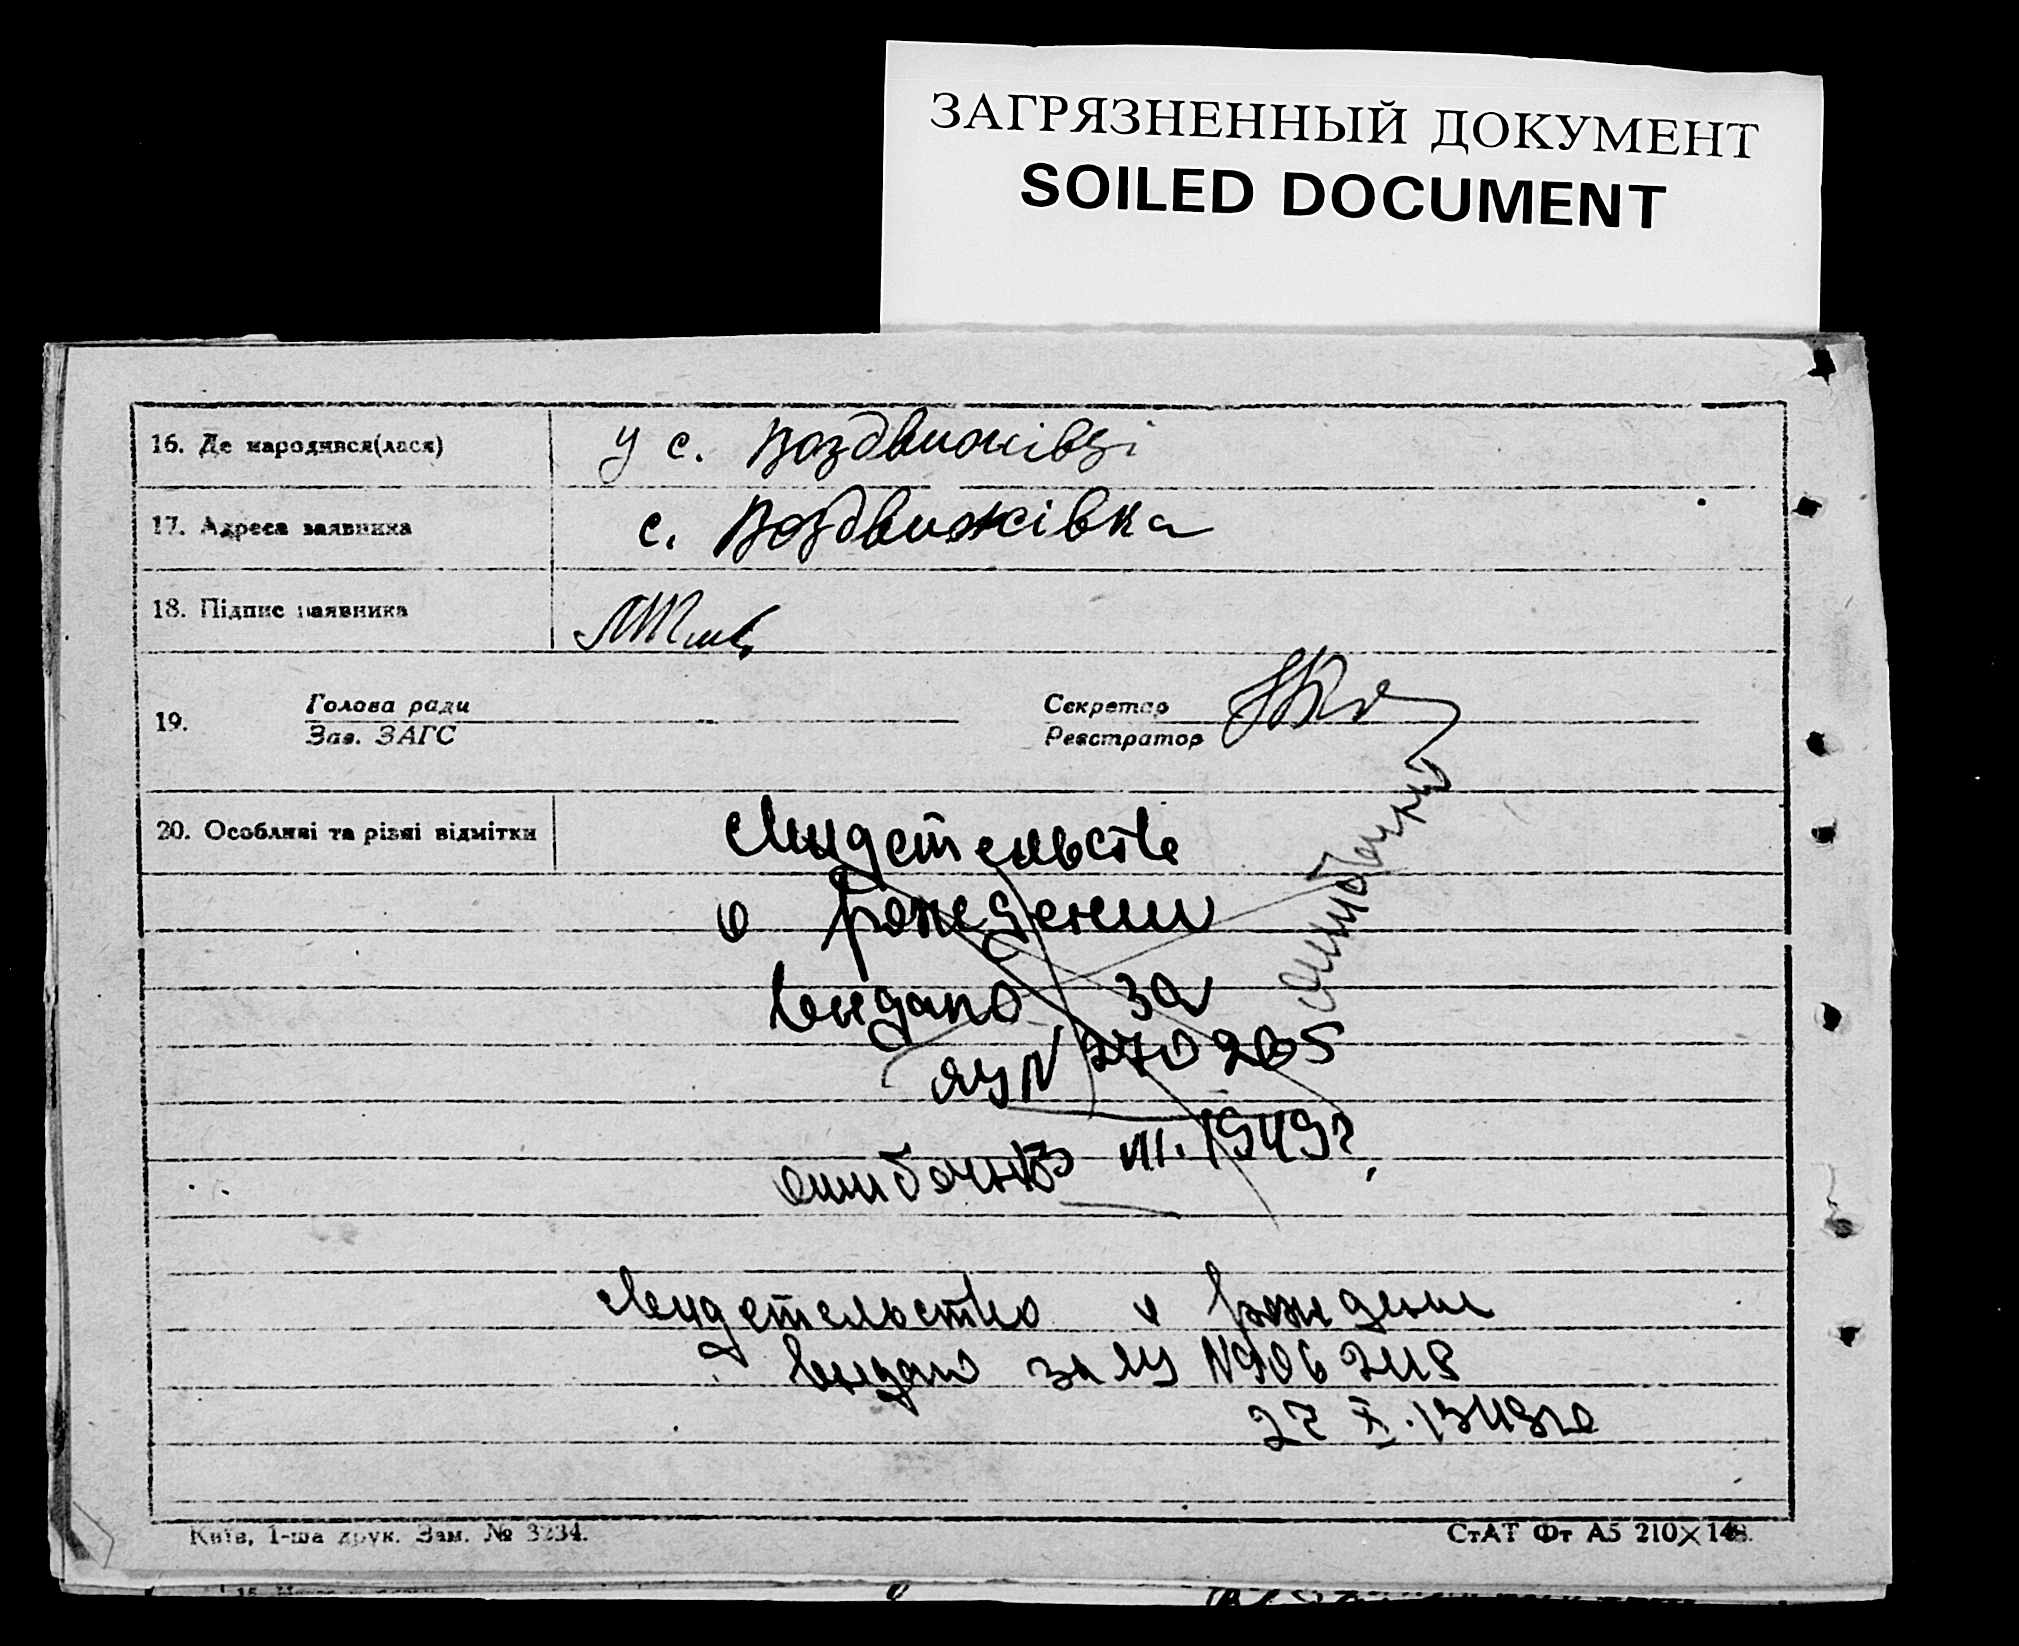 ЗАГРЯЗНЕННЫЙ ДОКУМЕНТ
SOILED DOCUMENT
16. Де народився(лася)
у с. Воздвижівці
17. Адреса заявника
с. Воздвижівка
18. Підпис заявника
19.
Голова ради
Зав. ЗАГС
Секретар
Реєстратор
20. Особливі та різні відмітки
Свидетельство
о рождении
выдано за
ЯУ N 270265
VII. 1949 г.
ошибочно
ошибочно
Свидетельство о рождении
выдано за ЯУ N
27 X. 1949 г
Київ, 1-ша друк. Зам. № 3234.
СтАТ Фт А5 210×148.